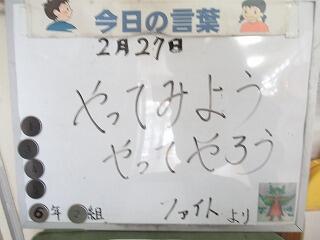 今日の言葉
2月27日
やってみよう
やってやろう
6年2組 ファイトより